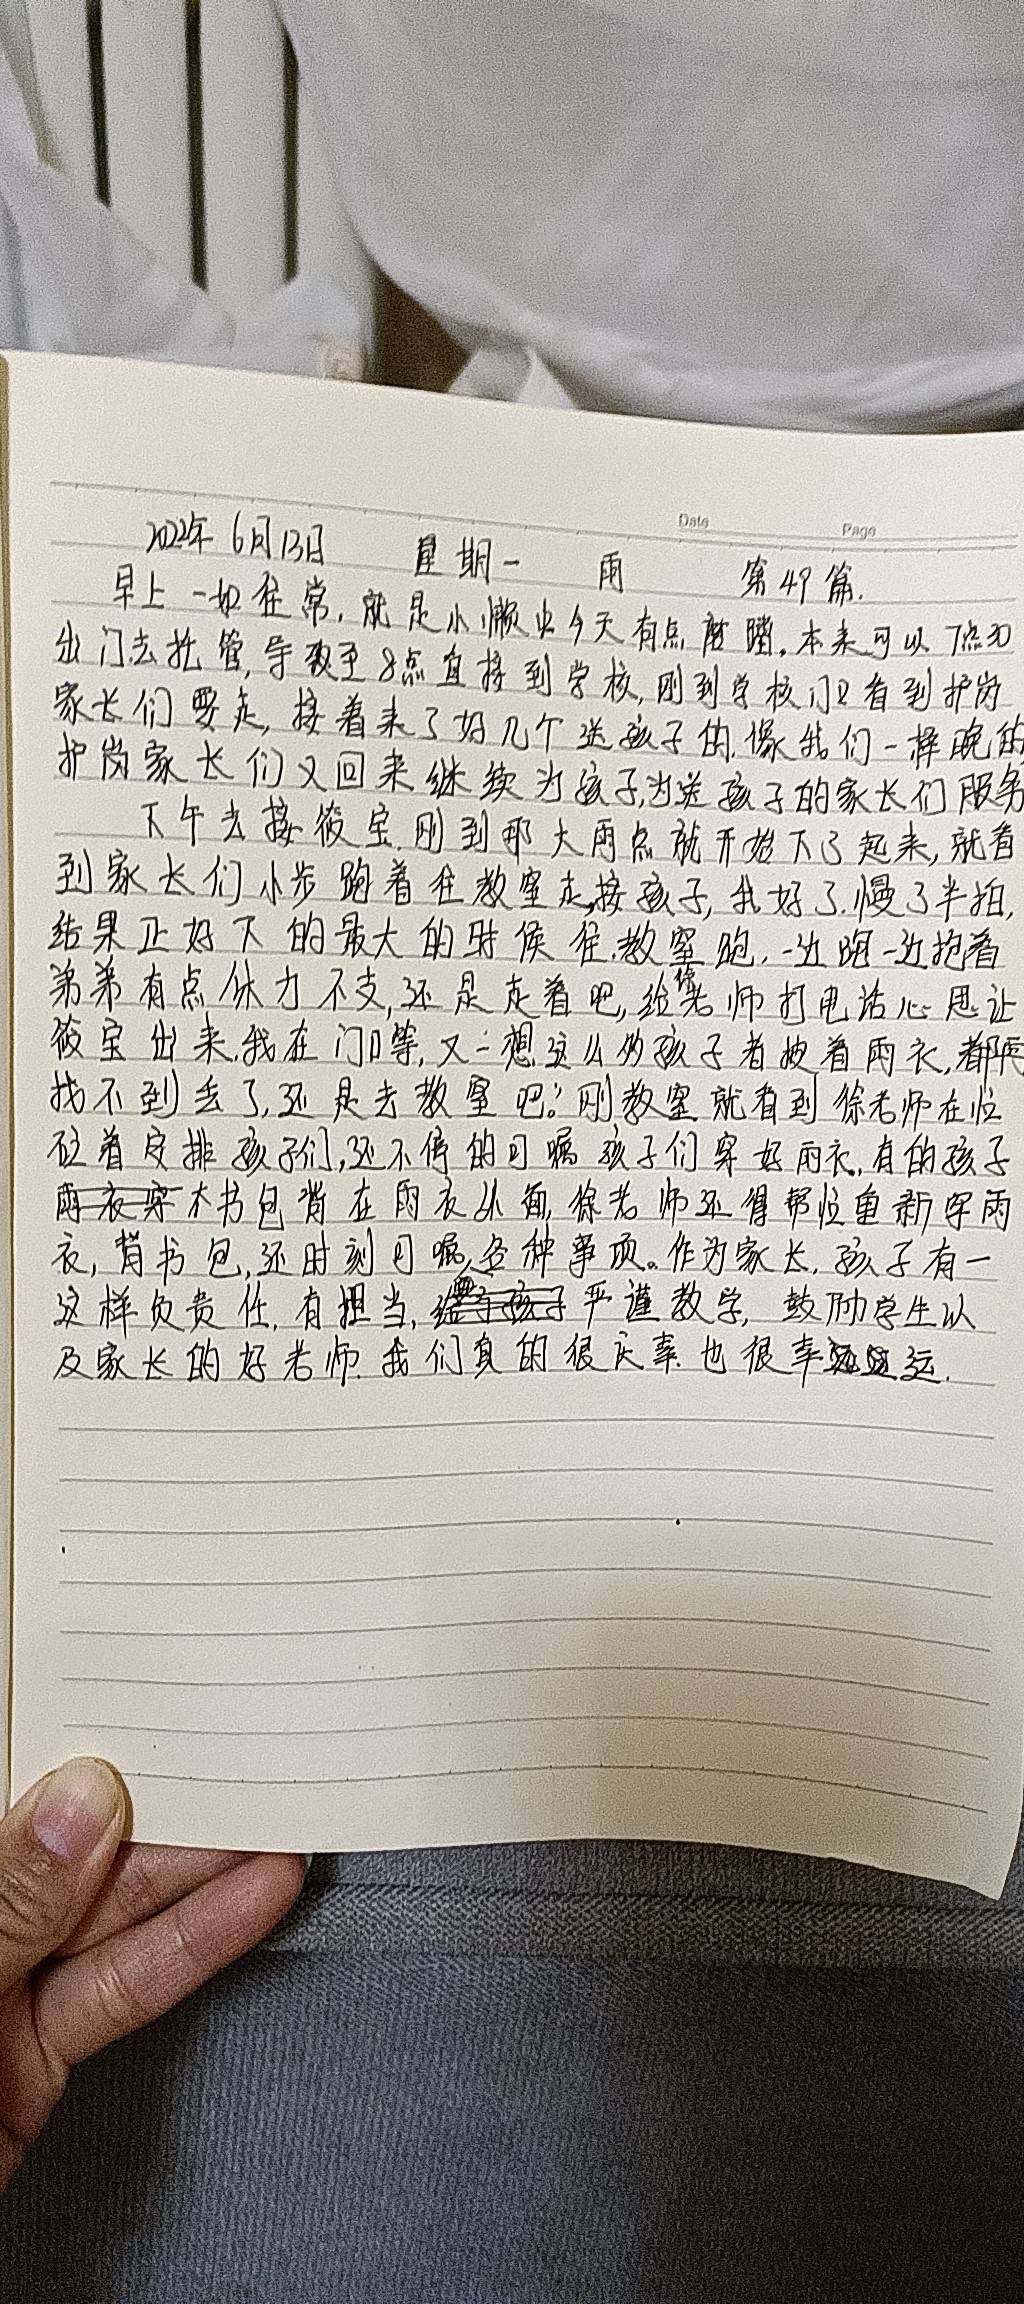 Date Page
2022年 6月13日 星期一 雨 第49篇.
早上一如往常,就是小懒虫今天有点磨蹭,本来可以7点30
出门去托管,导致至8点直接到学校,刚到学校门口看到护岗
家长们要走,接着来了好几个送孩子的,像我们一样晚的
护岗家长们又回来继续为孩子,为送孩子的家长们服务
下午去接筱宝,刚到那大雨点就开始下了起来,就看
到家长们小步跑着往教室走,接孩子,我好了,慢了半拍,
结果正好下的最大的时候往教室跑,一边跑一边抱着
弟弟有点体力不支,还是走着吧,给徐老师打电话心思让
筱宝出来,我在门口等,又一想这么多孩子着披着雨衣,都再
找不到丢了,还是去教室吧!刚教室就看到徐老师在忙
碌着安排孩子们,还不停的叮嘱孩子们穿好雨衣,有的孩子
雨衣穿不书包背在雨衣外面,徐老师还得帮忙重新穿雨
衣,背书包,还时刻叮嘱,各种事项。作为家长,孩子有一
这样负责任,有担当,严谨教学,鼓励学生以
及家长的好老师,我们真的很庆幸,也很幸运.